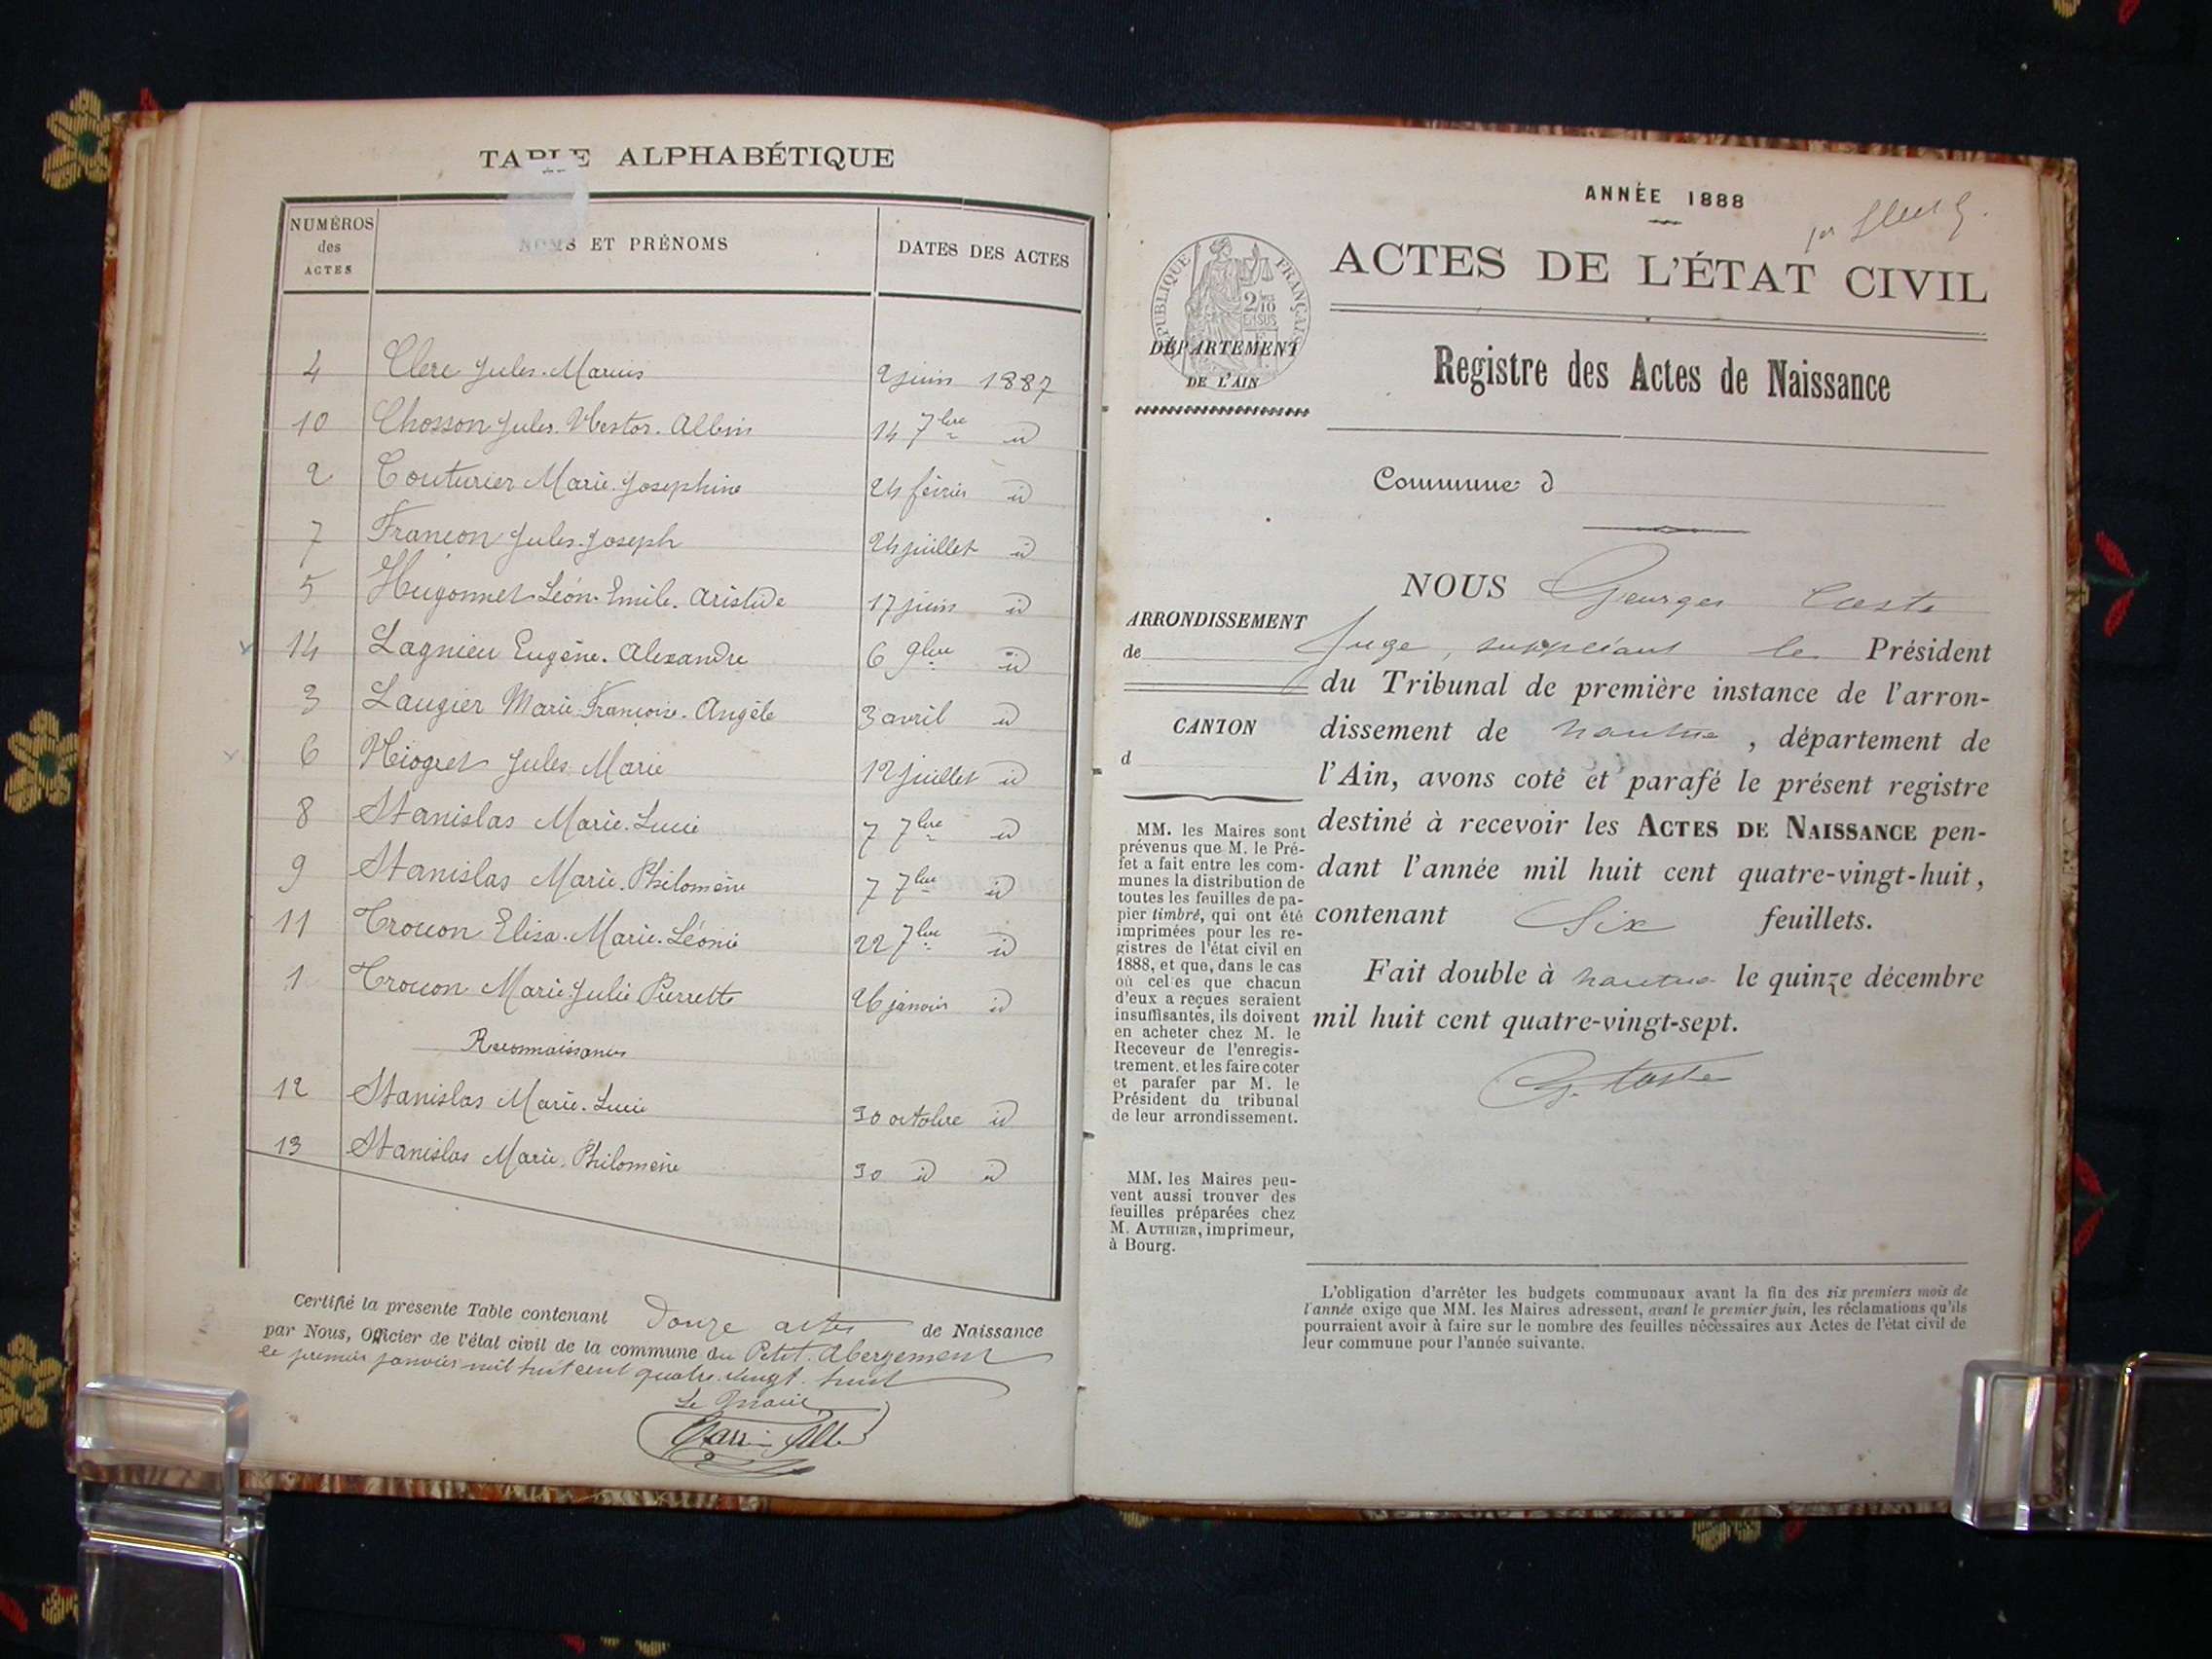 TABLE ALPHABÉTIQUE
NUMÉROS des ACTES
NOMS ET PRÉNOMS
DATES DES ACTES
4 Clerc Jules. Marius 2 juin 1887
10 Chosson Jules. Nestor. Albin 14 7bre id
2 Couturier Marie. Josephine 24 février id
7 Françon Jules. Joseph 24 juillet id
5 Hugonnet Léon. Emile. Aristide 17 juin id
14 Lagnieu Eugène. Alexandre 6 9bre id
3 Laugier Marie. Françoise. Angèle 3 avril id
6 Niogret Jules Marie 12 juillet id
8 Stanislas Marie. Lucie 7 7bre id
9 Stanislas Marie. Philomène 7 7bre id
11 Troccon Elisa. Marie. Léonie 22 7bre id
1 Troccon Marie. Julie Pierrette 26 janvier id
Reconnaissances
12 Stanislas Marie. Lucie 30 octobre id
13 Stanislas Marie. Philomène 30 id id
Certifié la présente Table contenant Douze actes de Naissance
par Nous, Officier de l'état civil de la commune du Petit. Abergement
le premier janvier mil huit cent quatre. vingt. huit
Le Maire
ANNÉE 1888
RÉPUBLIQUE FRANÇAISE
2/10 EN SUS
DÉPARTEMENT
DE L'AIN
ACTES DE L'ÉTAT CIVIL
Registre des Actes de Naissance
Commune d
ARRONDISSEMENT
de
CANTON
d
MM. les Maires sont
prévenus que M. le Pré-
fet a fait entre les com-
munes la distribution de
toutes les feuilles de pa-
pier timbré, qui ont été
imprimées pour les re-
gistres de l'état civil en
1888, et que, dans le cas
où celles que chacun
d'eux a reçues seraient
insuffisantes, ils doivent
en acheter chez M. le
Receveur de l'enregis-
trement, et les faire coter
et parafer par M. le
Président du tribunal
de leur arrondissement.
MM. les Maires peu-
vent aussi trouver des
feuilles préparées chez
M. AUTHIER, imprimeur,
à Bourg.
NOUS Georges Coste
Juge, suppléant le Président
du Tribunal de première instance de l'arron-
dissement de Nantua, département de
l'Ain, avons coté et parafé le présent registre
destiné à recevoir les ACTES DE NAISSANCE pen-
dant l'année mil huit cent quatre-vingt-huit,
contenant Six feuillets.
Fait double à Nantua le quinze décembre
mil huit cent quatre-vingt-sept.
G. Coste
L'obligation d'arrêter les budgets communaux avant la fin des six premiers mois de
l'année exige que MM. les Maires adressent, avant le premier juin, les réclamations qu'ils
pourraient avoir à faire sur le nombre des feuilles nécessaires aux Actes de l'état civil de
leur commune pour l'année suivante.